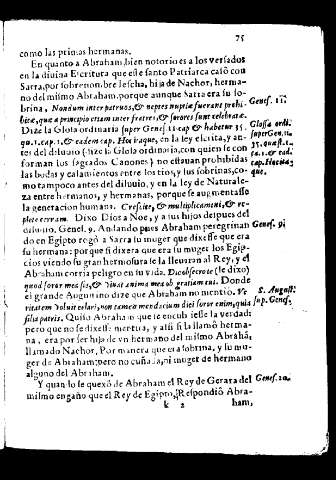 75
como las primas hermanas.
En quanto a Abraham, bien notorio es a los versados
en la diuina Escritura que este santo Patriarca casò con
Sarra, por sobrenombre Iescha, hija de Nachor, herma-
no del mismo Abraham, porque aunque Sarra era su so-
brina, Nondum inter patruos, & neptes nuptiæ fuerant prohi-
Genes. 11.
bitæ, quæ à principio etiam inter fratres, & sorores sunt celebratæ.
Dize la Glosa ordinaria super Genes. 11. cap & habetur 35.
Glosa ordi.
qu. 1. cap. 1, & eadem cap. Hoc itaque, en la ley escrita, y an-
superGen. 11.
tes del diluuio (dize la Glosa ordinaria, con quien se con
35. quæst. 1.
forman los sagrados Canones) no estauan prohibidas
1. & ead.
las bodas y casamientos entre los tios, y sus sobrinas, co-
cap. Hocita;
mo tampoco antes del diluuio, y en la ley de Naturale-
que.
za entre hermanos, y hermanas, porque se augmentasse
la generacion humana. Crescite, & multiplicamini, & re-
plete terram. Dixo Dios a Noe, y a sus hijos despues del
diluuio, Genes. 9. Andando pues Abraham peregrinan
Genes. 9.
do en Egipto rogò a Sarra su muger que dixesse que era
su hermana: porque si dixera que era su muger los Egip-
cios viendo su gran hermosura se la lleuaran al Rey, y el
Abraham corria peligro en su vida. Dic obsecro te (le dixo)
quod soror mea sis, & viuat anima mea ob gratiam tui. Donde
el grande Augustino dize que Abraham no mentio. Ve
S. August.
ritatem voluit celari, non tamen mendacium dici soror enim, quia
sup. Genes.
filia patris. Quiso Abraham que se encubriesse la verdad:
pero que no se dixesse mentira, y assi si la llamò herma-
na, era por ser hija de vn hermano del mismo Abrahã,
llamado Nachor, Por manera que era sobrina, y su mu-
ger de Abraham; pero no cuñada, ni muger de hermano
alguno del Abraham.
Y quando se quexò de Abraham el Rey de Gerara del
Genes. 20.
mismo engaño que el Rey de Egipto, Respondiò Abra-
k 2
ham,